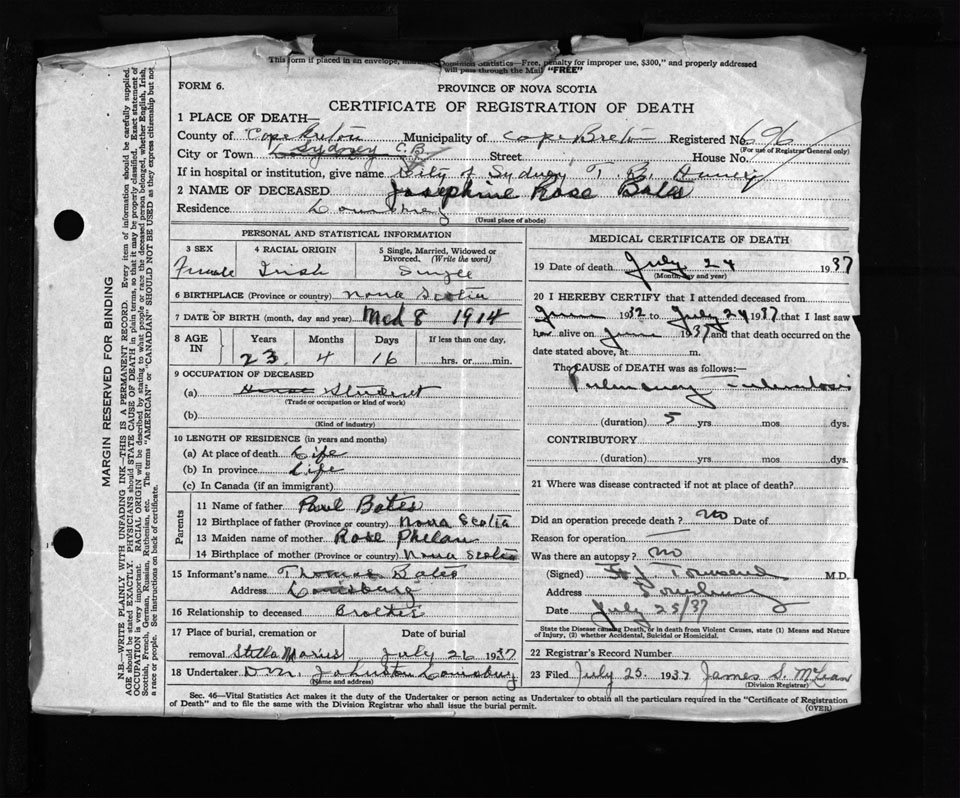 This form if placed in an envelope, mar Dominion Statistics—Free, penalty for improper use, $300," and properly addressed
will pass through the Mail "FREE"
FORM 6.
PROVINCE OF NOVA SCOTIA
CERTIFICATE OF REGISTRATION OF DEATH
1 PLACE OF DEATH—
County of Cape Breton Municipality of Cape Breton Registered No. 696
(For use of Registrar General only)
City or Town Sydney C.B. Street House No.
If in hospital or institution, give name City of Sydney T. B.
2 NAME OF DECEASED Josephine Rose Bates
Residence Louisburg
(Usual place of abode)
PERSONAL AND STATISTICAL INFORMATION
3 SEX 4 RACIAL ORIGIN 5 Single, Married, Widowed or Divorced. (Write the word)
Female Irish Single
6 BIRTHPLACE (Province or country) Nova Scotia
7 DATE OF BIRTH (month, day and year) 8 1914
8 AGE IN Years Months Days If less than one day,
23 4 16 hrs. or min.
9 OCCUPATION OF DECEASED
(a) Student
(Trade or occupation or kind of work)
(b)
(Kind of industry)
10 LENGTH OF RESIDENCE (in years and months)
(a) At place of death Life
(b) In province Life
(c) In Canada (if an immigrant)
Parents
11 Name of father Paul Bates
12 Birthplace of father (Province or country) Nova Scotia
13 Maiden name of mother Rose Phelan
14 Birthplace of mother (Province or country) Nova Scotia
15 Informant's name Thomas Bates
Address Louisburg
16 Relationship to deceased Brother
17 Place of burial, cremation or Date of burial
removal Stella Maries July 26 1937
18 Undertaker D. M. Johnston Louisburg
(Name and address)
MEDICAL CERTIFICATE OF DEATH
19 Date of death July 24 1937
(Month, day and year)
20 I HEREBY CERTIFY that I attended deceased from
June 1932 to July 24 1937 that I last saw
her alive on June 1937 and that death occurred on the
date stated above, at m.
The CAUSE OF DEATH was as follows:—
Pulmonary Tuberculosis
(duration) 5 yrs. mos. dys.
CONTRIBUTORY
(duration) yrs. mos. dys.
21 Where was disease contracted if not at place of death?
Did an operation precede death? no Date of
Reason for operation
Was there an autopsy? no
(Signed) Townsend M.D.
Address Louisburg
Date July 25/37
State the Disease causing Death, or in death from Violent Causes, state (1) Means and Nature
of Injury, (2) whether Accidental, Suicidal or Homicidal.
22 Registrar's Record Number
23 Filed July 25. 1937 James S. McLean
(Division Registrar)
Sec. 46—Vital Statistics Act makes it the duty of the Undertaker or person acting as Undertaker to obtain all the particulars required in the "Certificate of Registration
of Death" and to file the same with the Division Registrar who shall issue the burial permit.
(OVER)
MARGIN RESERVED FOR BINDING
N.B.—WRITE PLAINLY WITH UNFADING INK—THIS IS A PERMANENT RECORD. Every item of information should be carefully supplied.
AGE should be stated EXACTLY. PHYSICIANS should STATE CAUSE OF DEATH in plain terms, so that it may be properly classified. Exact statement of
OCCUPATION is very important. RACIAL ORIGIN will be described by stating to what people or race the deceased person belonged, whether English, Irish,
Scottish, French, German, Russian, Ruthenian, etc. The terms "AMERICAN" or "CANADIAN" SHOULD NOT BE USED as they express citizenship but not
a race or people. See instructions on back of certificate.